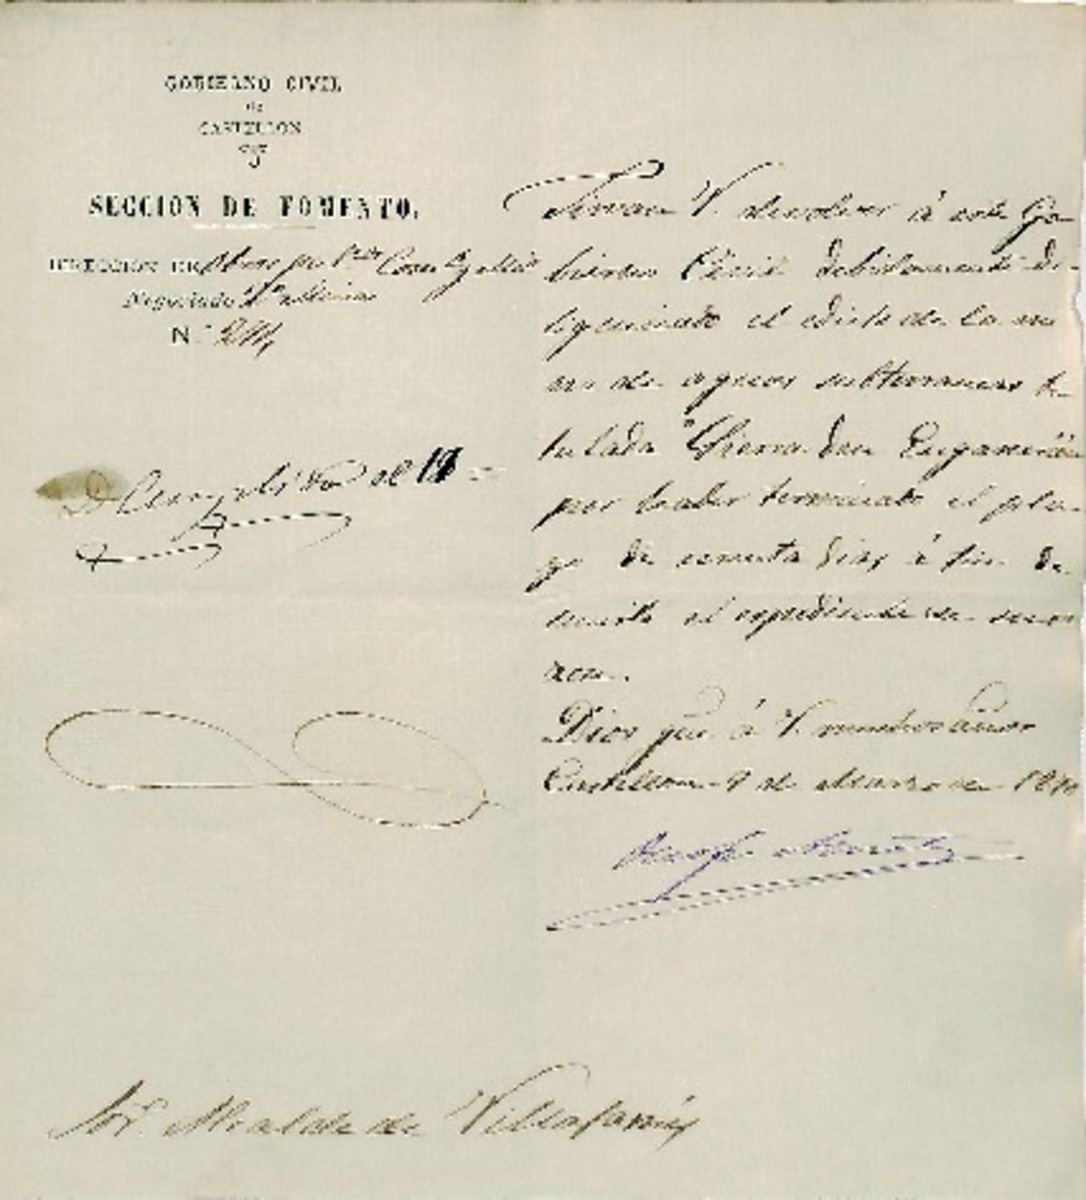 GOBIERNO CIVIL
de
CASTELLON
SECCION DE FOMENTO.
DIRECCION DE Obras pu Com.º y
Negociado Minas
N.º
Sírvase V. devolver á este Go-
bierno Civil debidamente di-
ligenciado el edicto de la mi
na de aguas subterraneas ti-
tulada Sierra den
por haber terminado el pla-
zo de sesenta dias á fin de
unirlo al expediente de su
razon.
Dios gue á V. muchos años
Castellon 9 de Marzo de
Cumplido el 19
Sor. Alcalde de Villafamés